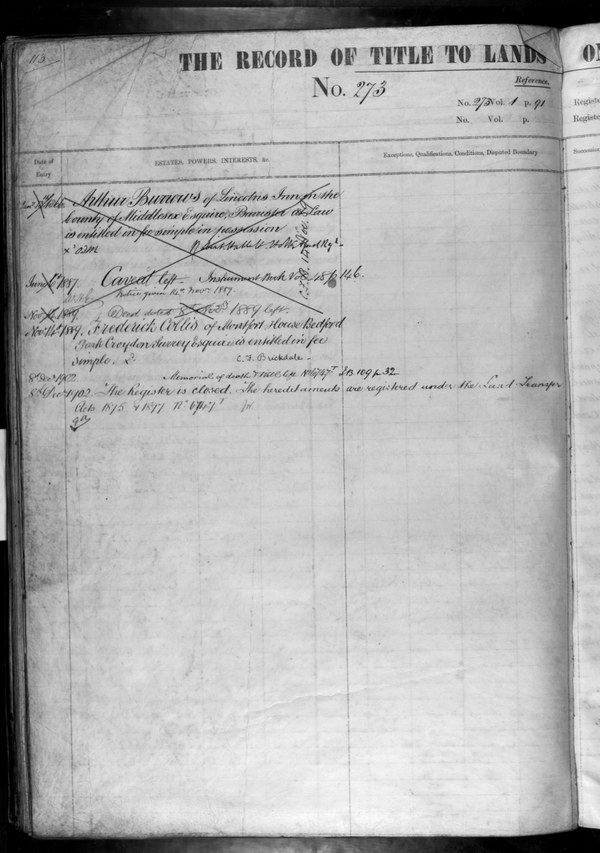 113
THE RECORD OF TITLE TO LANDS
No. 273
Reference.
No. 273 Vol. 1 p. 91
No. Vol. p.
Date of Entry
ESTATES, POWERS, INTERESTS, &c.
Exceptions, Qualifications, Conditions, Disputed Boundary
Arthur Burrows of Lincolns Inn in the
County of Middlesex Esquire, Barrister at Law
is entitled in fee simple in possession
1887. Caveat left. Instrument Book Vol. 48 p. 146.
Notice given 14th Novr. 1889.
1889 Deed dated 8th Novr. 1889 left.
Novr. 14th 1889. Frederick Collis of Montfort House Bedford
Park Croydon Surrey Esquire is entitled in fee
simple.
C. F. Brickdale
8th Decr. 1902 Memorial of death & Will left I B 109 p 32
8th Decr. 1902 The Register is closed. The hereditaments are registered under the Land Transfer
Acts 1875 & 1897
ON
Registe
Registe
Succession